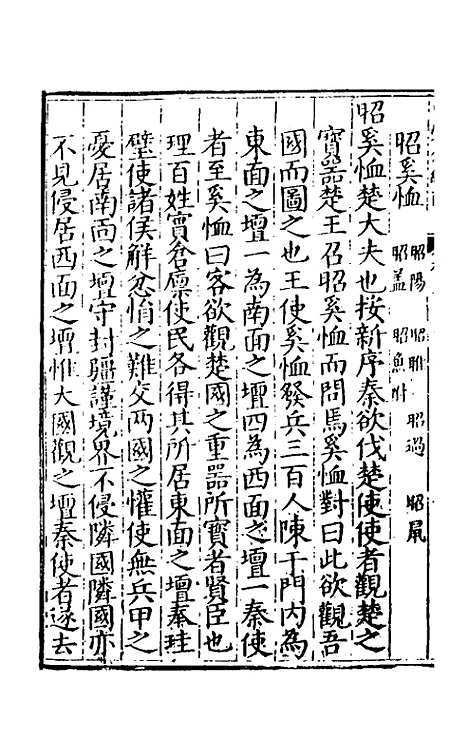 昭奚恤 昭陽 昭雎 昭過 昭鼠
昭蓋 昭魚附
昭奚恤楚大夫也按新序秦欲伐楚使使者觀楚之
寶器楚王召昭奚恤而問焉奚恤對曰此欲觀吾
國而圖之也王使奚恤發兵三百人陳于門內為
東面之壇一為南面之壇四為西面之壇一秦使
者至奚恤曰客欲觀楚國之重器所寶者賢臣也
理百姓實倉廪使民各得其所居東面之壇奉珪
璧使諸侯觧忿悁之難交两國之懽使無兵甲之
憂居南面之壇守封疆謹境界不侵隣國隣國亦
不見侵居西面之壇惟大國觀之壇秦使者遂去